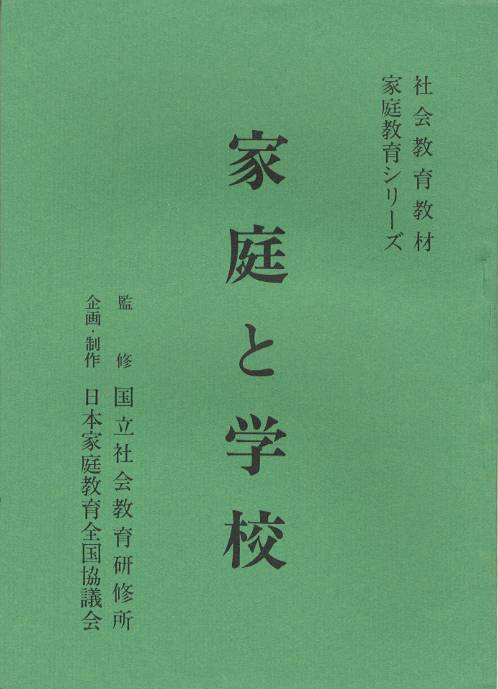 社会教育教材
家庭教育シリーズ
家庭と学校
監修 国立社会教育研修所
企画・制作 日本家庭教育全国協議会